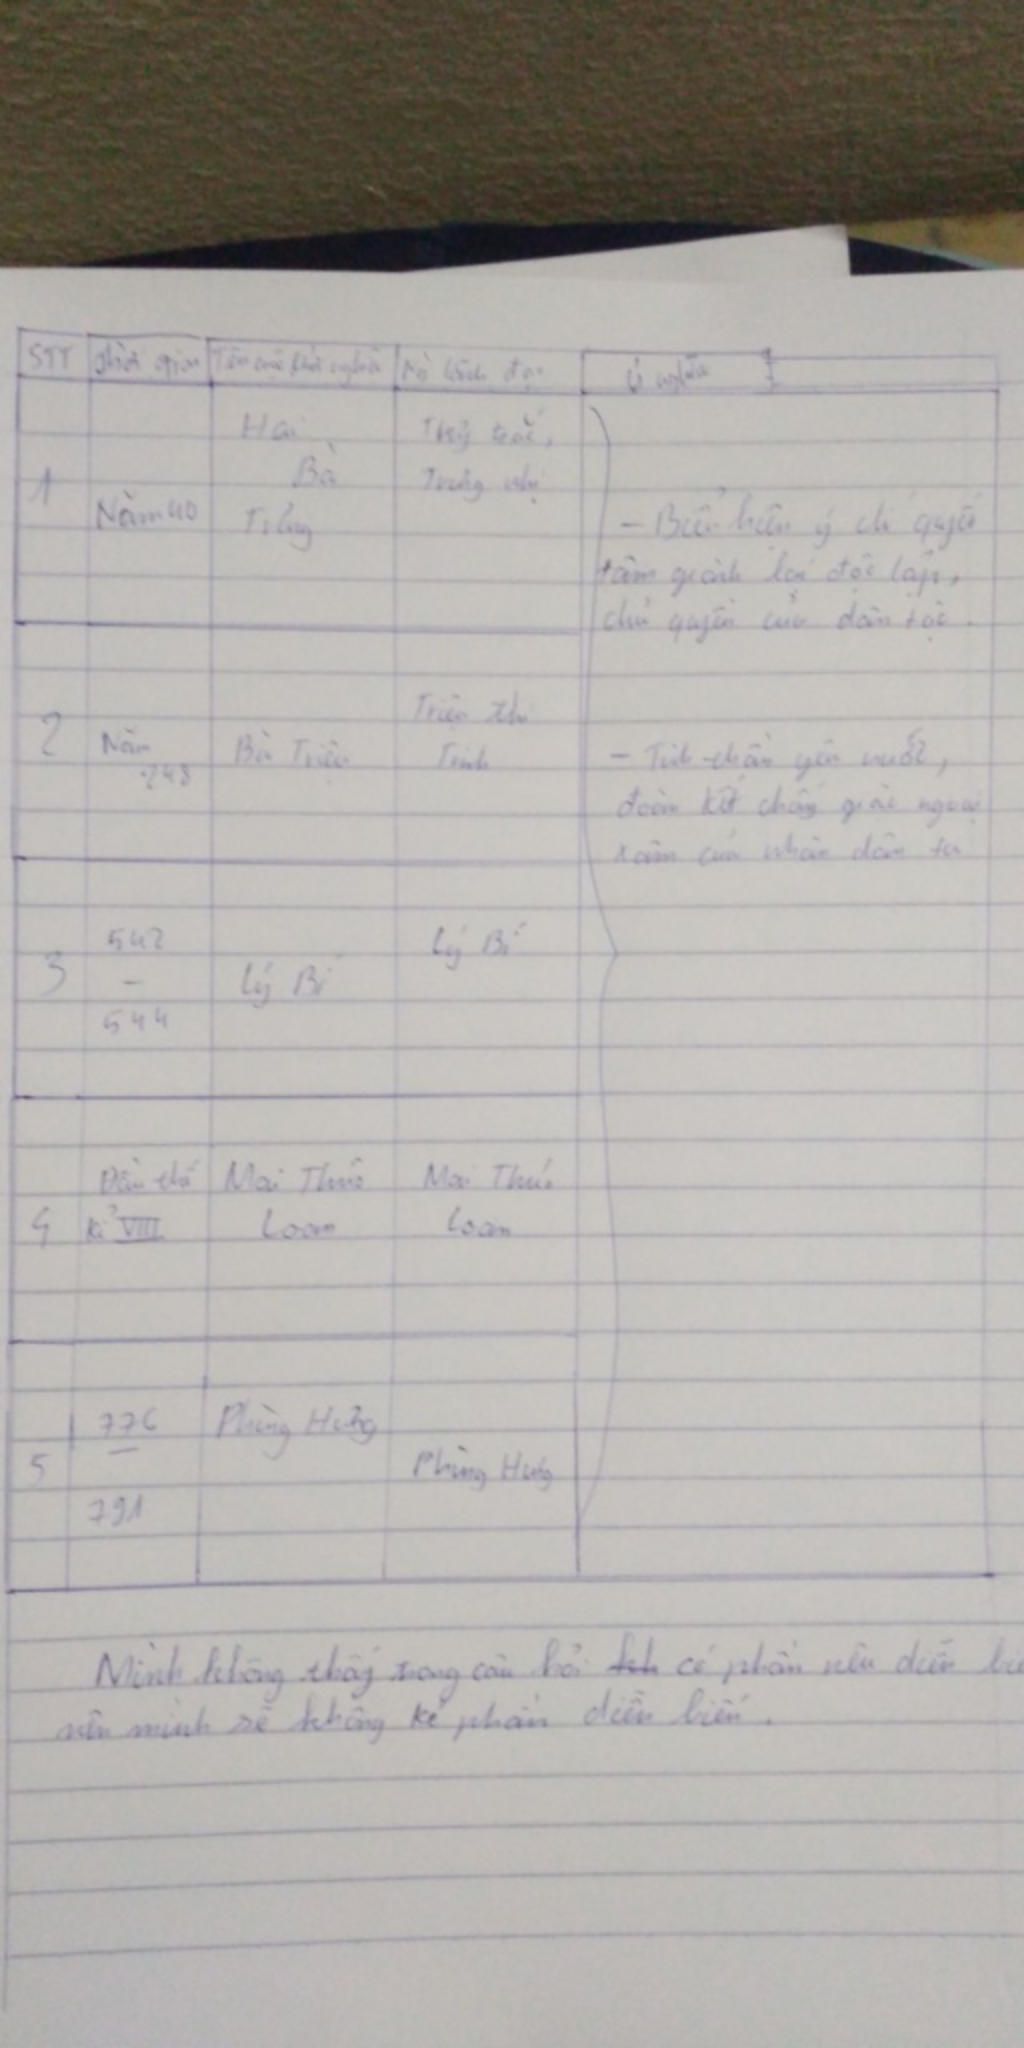 STT Thời gian Tên cuộc khởi nghĩa lãnh đạo ý nghĩa
1 Năm 40 Hai Bà Trưng Trưng trắc, Trưng nhị
- Biểu hiện ý chí quyết
tâm giành lại độc lập,
chủ quyền của dân tộc.
2 Năm 248 Bà Triệu Triệu thị Trinh
- Tinh thần yêu nước,
đoàn kết chống giặc ngoại
xâm của nhân dân ta
3 542 - 544 Lý Bí Lý Bí
4 Đầu thế kỉ VIII Mai Thúc Loan Mai Thúc Loan
5 776 - 791 Phùng Hưng Phùng Hưng
Mình không thấy trong câu hỏi có phần nêu diễn
nên mình sẽ không kẻ phần diễn biến.